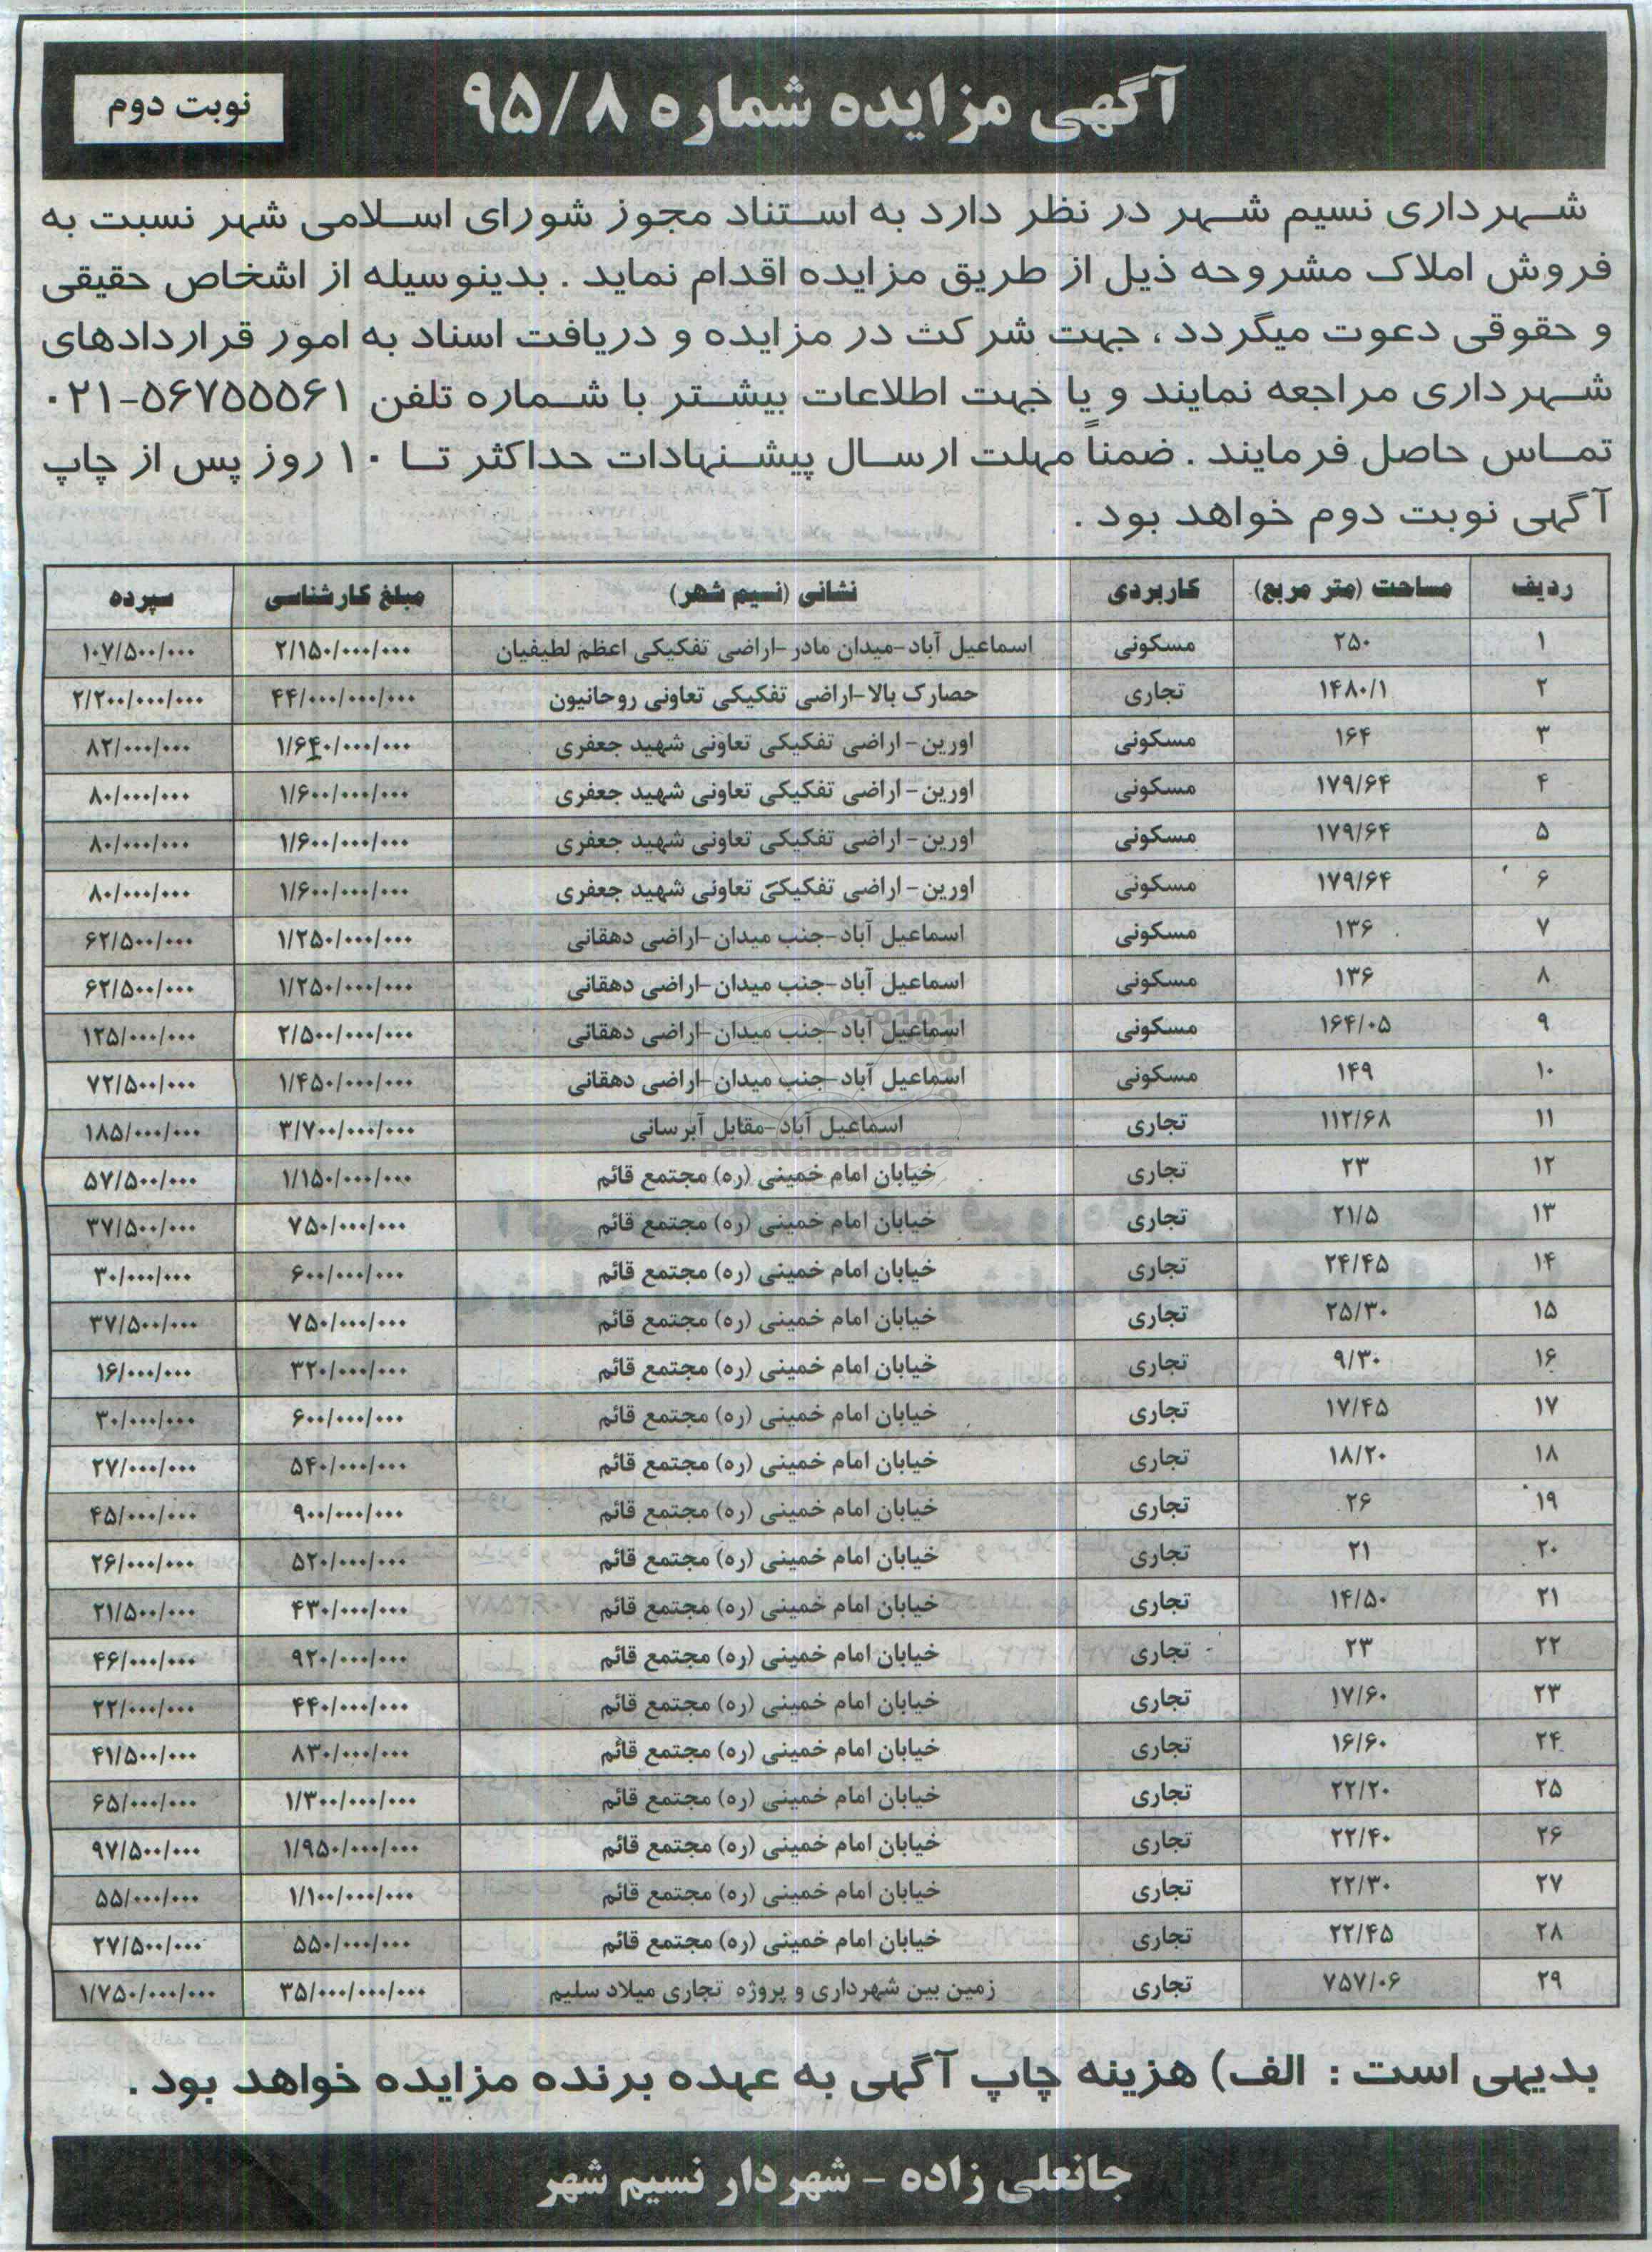 آگهی مزایده شماره ۹۵/۸
نوبت دوم
شهرداری نسیم شهر در نظر دارد به استناد مجوز شورای اسلامی شهر نسبت به
فروش املاک مشروحه ذیل از طریق مزایده اقدام نماید . بدینوسیله از اشخاص حقیقی
و حقوقی دعوت میگردد ، جهت شرکت در مزایده و دریافت اسناد به امور قراردادهای
شهرداری مراجعه نمایند و یا جهت اطلاعات بیشتر با شماره تلفن ۵۶۷۵۵۵۶۱-۰۲۱
تماس حاصل فرمایند . ضمناً مهلت ارسال پیشنهادات حداکثر تا ۱۰ روز پس از چاپ
آگهی نوبت دوم خواهد بود .
ردیف مساحت (متر مربع) کاربردی نشانی (نسیم شهر) مبلغ کارشناسی سپرده
۱ ۲۵۰ مسکونی اسماعیل آباد-میدان مادر-اراضی تفکیکی اعظم لطیفیان ۲/۱۵۰/۰۰۰/۰۰۰ ۱۰۷/۵۰۰/۰۰۰
۲ ۱۴۸۰/۱ تجاری حصارک بالا-اراضی تفکیکی تعاونی روحانیون ۴۴/۰۰۰/۰۰۰/۰۰۰ ۲/۲۰۰/۰۰۰/۰۰۰
۳ ۱۶۴ مسکونی اورین- اراضی تفکیکی تعاونی شهید جعفری ۱/۶۴۰/۰۰۰/۰۰۰ ۸۲/۰۰۰/۰۰۰
۴ ۱۷۹/۶۴ مسکونی اورین- اراضی تفکیکی تعاونی شهید جعفری ۱/۶۰۰/۰۰۰/۰۰۰ ۸۰/۰۰۰/۰۰۰
۵ ۱۷۹/۶۴ مسکونی اورین- اراضی تفکیکی تعاونی شهید جعفری ۱/۶۰۰/۰۰۰/۰۰۰ ۸۰/۰۰۰/۰۰۰
۶ ۱۷۹/۶۴ مسکونی اورین- اراضی تفکیکی تعاونی شهید جعفری ۱/۶۰۰/۰۰۰/۰۰۰ ۸۰/۰۰۰/۰۰۰
۷ ۱۳۶ مسکونی اسماعیل آباد-جنب میدان-اراضی دهقانی ۱/۲۵۰/۰۰۰/۰۰۰ ۶۲/۵۰۰/۰۰۰
۸ ۱۳۶ مسکونی اسماعیل آباد-جنب میدان-اراضی دهقانی ۱/۲۵۰/۰۰۰/۰۰۰ ۶۲/۵۰۰/۰۰۰
۹ ۱۶۴/۰۵ مسکونی اسماعیل آباد-جنب میدان-اراضی دهقانی ۲/۵۰۰/۰۰۰/۰۰۰ ۱۲۵/۰۰۰/۰۰۰
۱۰ ۱۴۹ مسکونی اسماعیل آباد-جنب میدان-اراضی دهقانی ۱/۴۵۰/۰۰۰/۰۰۰ ۷۲/۵۰۰/۰۰۰
۱۱ ۱۱۲/۶۸ تجاری اسماعیل آباد-مقابل آبرسانی ۳/۷۰۰/۰۰۰/۰۰۰ ۱۸۵/۰۰۰/۰۰۰
۱۲ ۲۳ تجاری خیابان امام خمینی (ره) مجتمع قائم ۱/۱۵۰/۰۰۰/۰۰۰ ۵۷/۵۰۰/۰۰۰
۱۳ ۲۱/۵ تجاری خیابان امام خمینی (ره) مجتمع قائم ۷۵۰/۰۰۰/۰۰۰ ۳۷/۵۰۰/۰۰۰
۱۴ ۲۴/۴۵ تجاری خیابان امام خمینی (ره) مجتمع قائم ۶۰۰/۰۰۰/۰۰۰ ۳۰/۰۰۰/۰۰۰
۱۵ ۲۵/۳۰ تجاری خیابان امام خمینی (ره) مجتمع قائم ۷۵۰/۰۰۰/۰۰۰ ۳۷/۵۰۰/۰۰۰
۱۶ ۹/۳۰ تجاری خیابان امام خمینی (ره) مجتمع قائم ۳۲۰/۰۰۰/۰۰۰ ۱۶/۰۰۰/۰۰۰
۱۷ ۱۷/۴۵ تجاری خیابان امام خمینی (ره) مجتمع قائم ۶۰۰/۰۰۰/۰۰۰ ۳۰/۰۰۰/۰۰۰
۱۸ ۱۸/۲۰ تجاری خیابان امام خمینی (ره) مجتمع قائم ۵۴۰/۰۰۰/۰۰۰ ۲۷/۰۰۰/۰۰۰
۱۹ ۲۶ تجاری خیابان امام خمینی (ره) مجتمع قائم ۹۰۰/۰۰۰/۰۰۰ ۴۵/۰۰۰/۰۰۰
۲۰ ۲۱ تجاری خیابان امام خمینی (ره) مجتمع قائم ۵۲۰/۰۰۰/۰۰۰ ۲۶/۰۰۰/۰۰۰
۲۱ ۱۴/۵۰ تجاری خیابان امام خمینی (ره) مجتمع قائم ۴۳۰/۰۰۰/۰۰۰ ۲۱/۵۰۰/۰۰۰
۲۲ ۲۳ تجاری خیابان امام خمینی (ره) مجتمع قائم ۹۲۰/۰۰۰/۰۰۰ ۴۶/۰۰۰/۰۰۰
۲۳ ۱۷/۶۰ تجاری خیابان امام خمینی (ره) مجتمع قائم ۴۴۰/۰۰۰/۰۰۰ ۲۲/۰۰۰/۰۰۰
۲۴ ۱۶/۶۰ تجاری خیابان امام خمینی (ره) مجتمع قائم ۸۳۰/۰۰۰/۰۰۰ ۴۱/۵۰۰/۰۰۰
۲۵ ۲۲/۲۰ تجاری خیابان امام خمینی (ره) مجتمع قائم ۱/۳۰۰/۰۰۰/۰۰۰ ۶۵/۰۰۰/۰۰۰
۲۶ ۲۲/۴۰ تجاری خیابان امام خمینی (ره) مجتمع قائم ۱/۹۵۰/۰۰۰/۰۰۰ ۹۷/۵۰۰/۰۰۰
۲۷ ۲۲/۳۰ تجاری خیابان امام خمینی (ره) مجتمع قائم ۱/۱۰۰/۰۰۰/۰۰۰ ۵۵/۰۰۰/۰۰۰
۲۸ ۲۲/۴۵ تجاری خیابان امام خمینی (ره) مجتمع قائم ۵۵۰/۰۰۰/۰۰۰ ۲۷/۵۰۰/۰۰۰
۲۹ ۷۵۷/۰۶ تجاری زمین بین شهرداری و پروژه تجاری میلاد سلیم ۳۵/۰۰۰/۰۰۰/۰۰۰ ۱/۷۵۰/۰۰۰/۰۰۰
ParsNamadData
بدیهی است : الف) هزینه چاپ آگهی به عهده برنده مزایده خواهد بود .
جانعلی زاده - شهردار نسیم شهر